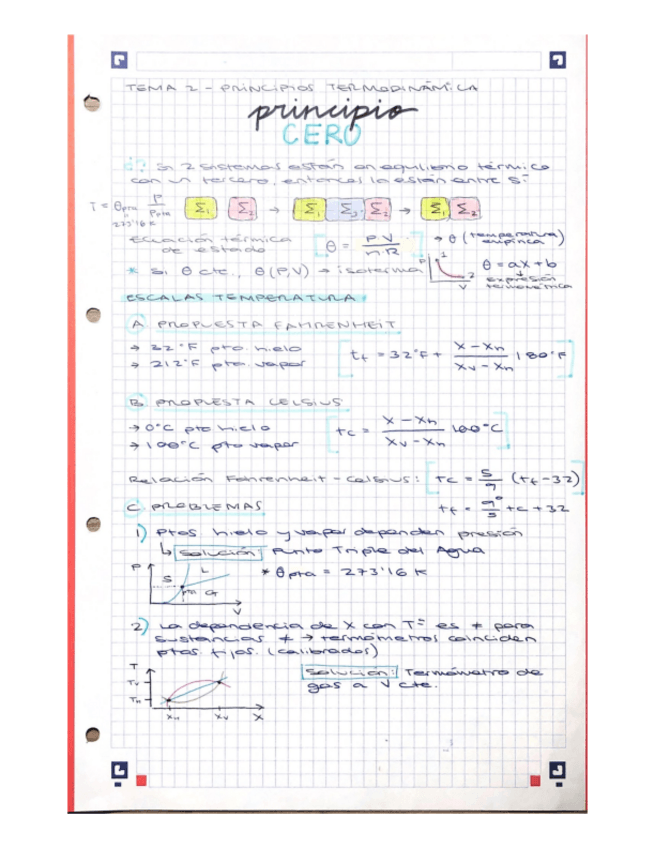 TEMA 2 - PRINCIPIOS TERMODINÁMICA
principio
CERO
Si 2 sistemas están en equilibrio térmico
con un tercero, entonces lo están entre sí
T = θpta P / Ppta
273'16 K
Σ1 Σ2 → Σ1 Σ3 Σ2 → Σ1 Σ2
Ecuación térmica de estado
θ = P.V / n.R
→ θ (temperatura empírica)
* Si θ cte, θ(P,V) → isoterma
P 1 2 V
θ = ax + b
expresión termométrica
ESCALAS TEMPERATURA
A PROPUESTA FAHRENHEIT
→ 32°F pto. hielo
→ 212°F pto. vapor
tf = 32°F + (x - xh / xv - xh) 180°F
B PROPUESTA CELSIUS
→ 0°C pto hielo
→ 100°C pto vapor
tc = (x - xh / xv - xh) 100°C
Relación Fahrenheit - Celsius: tc = 5/9 (tf - 32)
tf = 9/5 tc + 32
C PROBLEMAS
1) Ptos hielo y vapor dependen presión
↳ Solución: Punto Triple del Agua
* θpta = 273'16 K
P S L pta G V
2) La dependencia de x con T es ≠ para
sustancias ≠ → termómetros coinciden
ptos. fijos. (calibrados)
Solución: Termómetro de
gas a V cte.
T Tv Th xh xv x